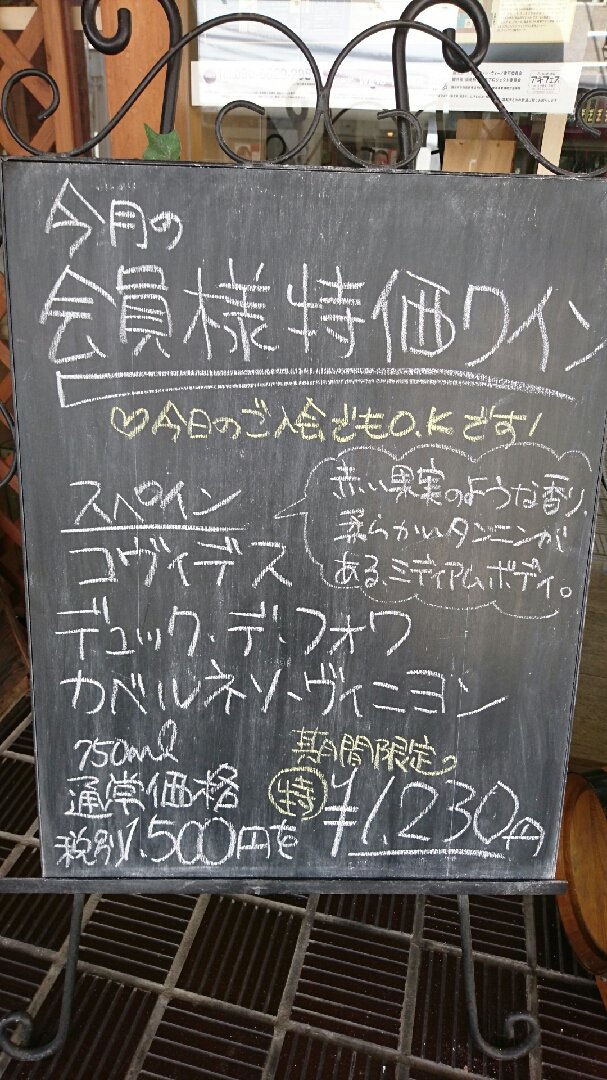 今月の
会員様特価ワイン
♡今日のご入会でもO.Kです!
スペイン
赤い果実のような香り、
柔らかいタンニンが
ある、ミディアムボディ。
コヴィデス
デュック・デ・フォワ
カベルネソーヴィニヨン
750ml
期間限定。
通常価格
税別1.500円を
特 ¥1.230円
アキフェス